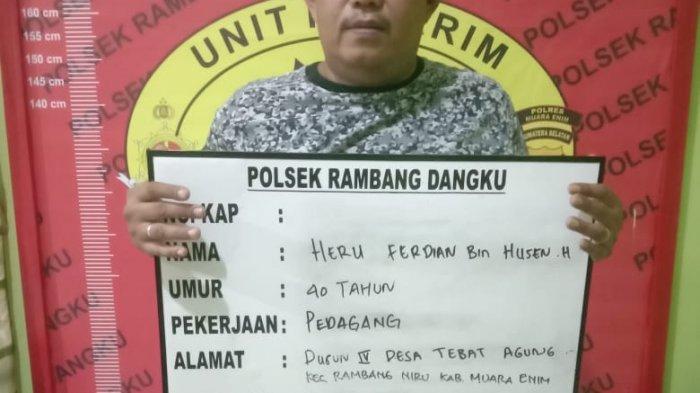 160 cm
155 cm
150 cm
145 cm
140 cm
POLSEK RAMBANG
UNIT
RIM
POLSEK
POLRES
MUARA ENIM
SUMATERA SELATAN
POLSEK RAMBANG DANGKU
KAP :
NAMA : HERU FERDIAN Bin HUSEN.H
UMUR : 40 TAHUN
PEKERJAAN : PEDAGANG
ALAMAT : DUSUN IV DESA TEBAT AGUNG
KEC. RAMBANG NIRU KAB. MUARA ENIM